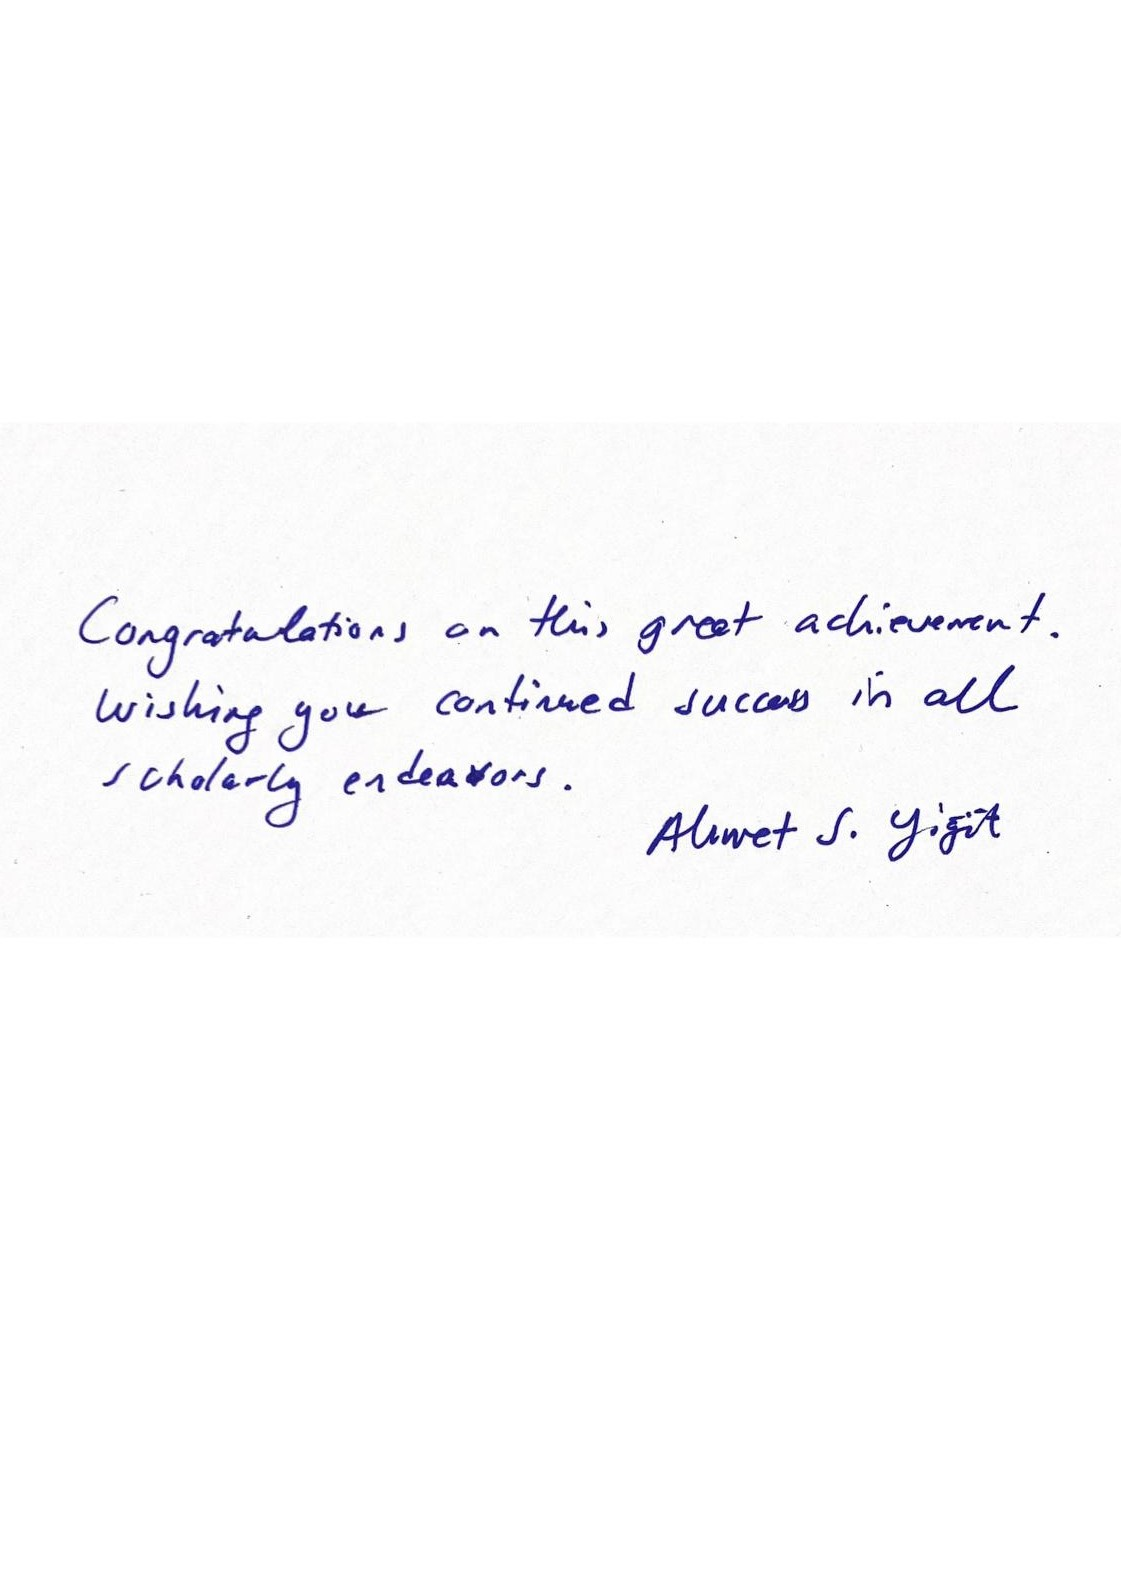 Congratulations on this great achievement.
Wishing you continued success in all
scholarly endeavors.
Ahmet S. Yiğit